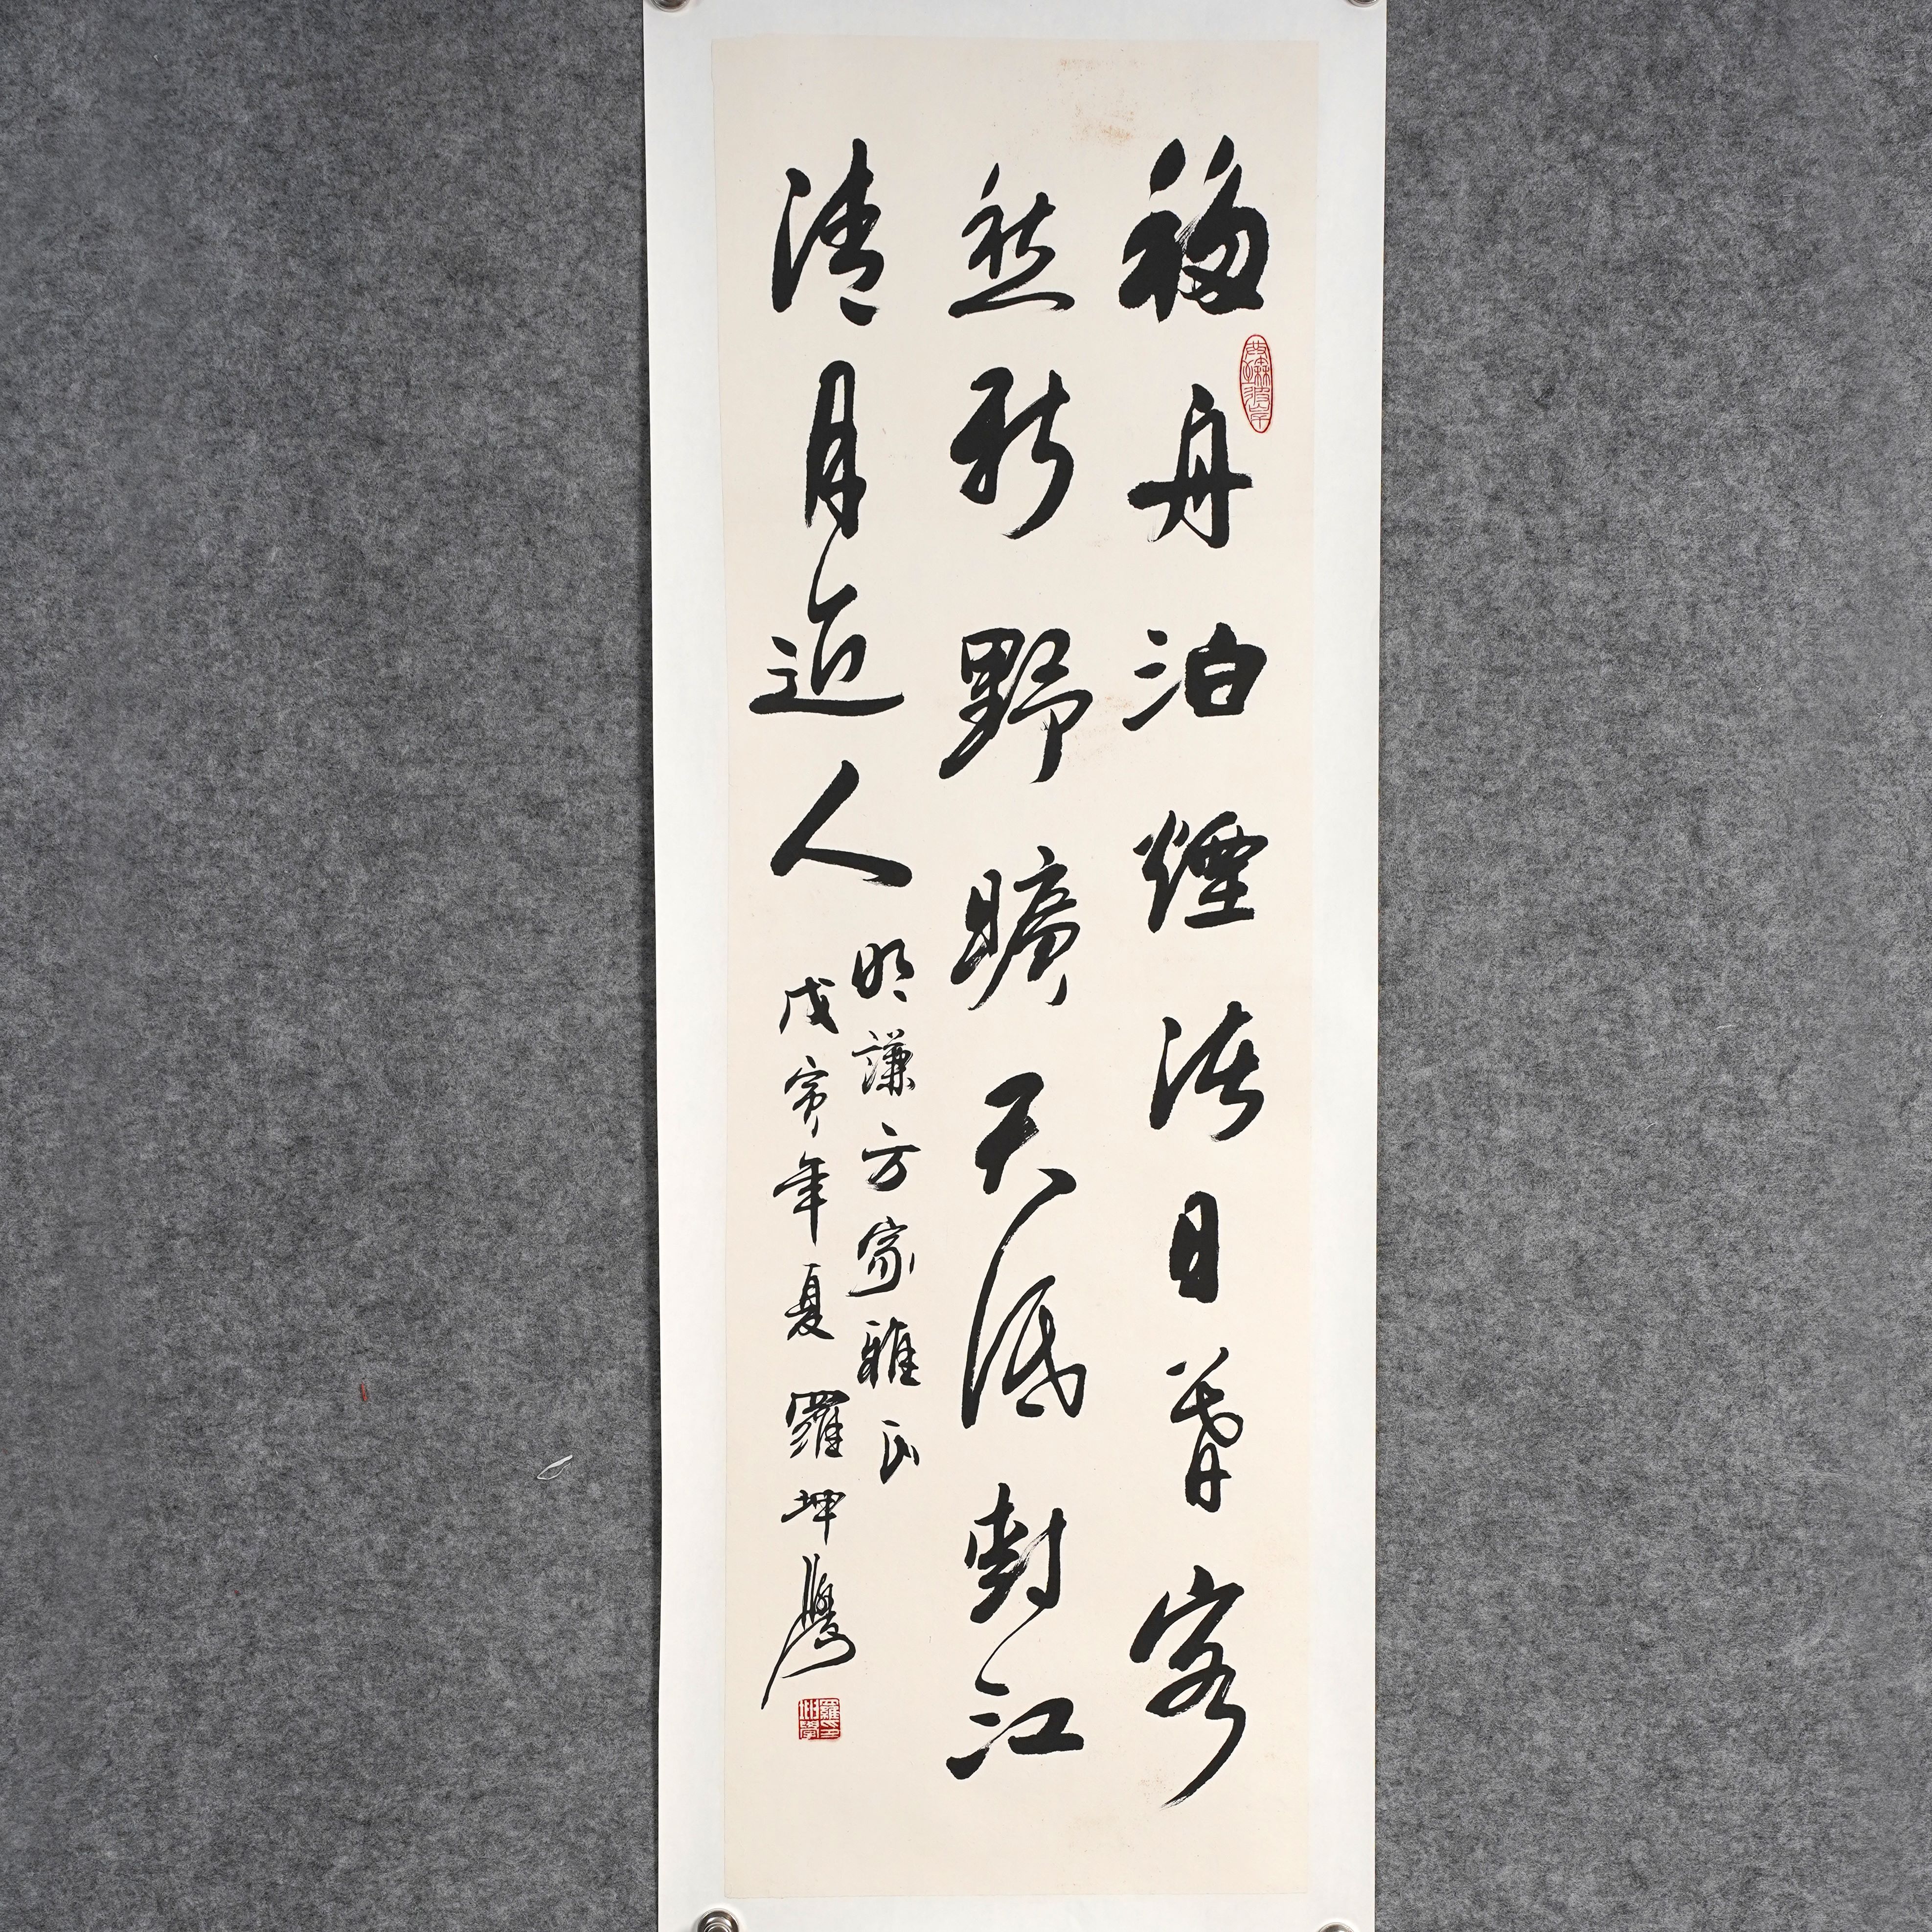 移舟泊煙渚日暮客
愁新野曠天低樹江
清月近人
明謙方家雅正
戊寅年夏羅坤學
羅印坤學